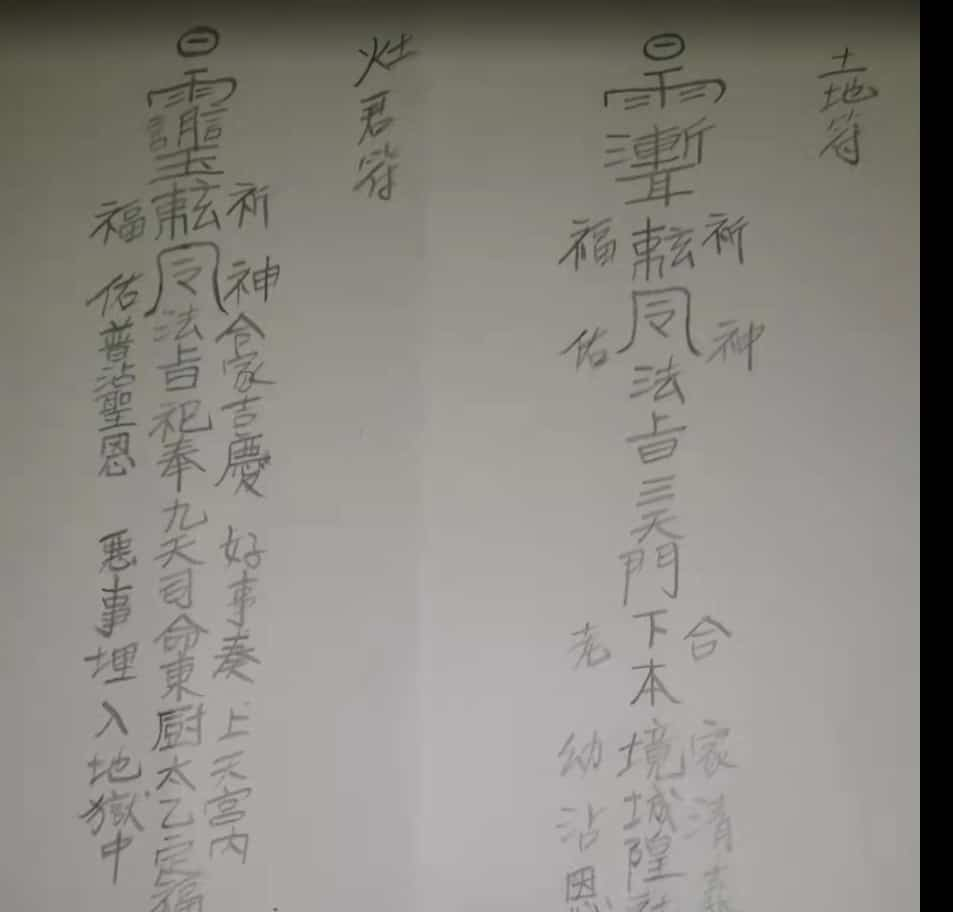 土地符
祈神
合家清
㊀
令
法旨三天門下本境城隍
福佑
老幼沾恩
灶君符
祈神合家吉慶 好事奏上天宮内
㊀
令
法旨祀奉九天司命東厨太乙定福
福佑普沾聖恩 惡事埋入地獄中